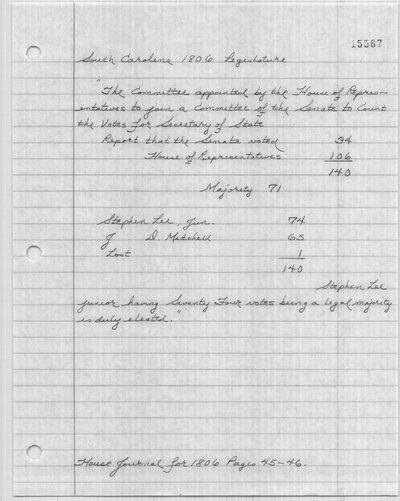 15387
South Carolina 1806 Legislature
"The Committee appointed by the House of Repres-
entatives to join a Committee of the Senate to Count
the Votes for Secretary of State
Report that the Senate voted 34
House of Representatives 106
140
Majority 71
Stephen Lee, Jun. 74
J D. Mitchell 65
Lost 1
140
Stephen Lee
junior having Seventy Four votes being a legal majority
is duly elected."
House Journal for 1806 Pages 45-46.